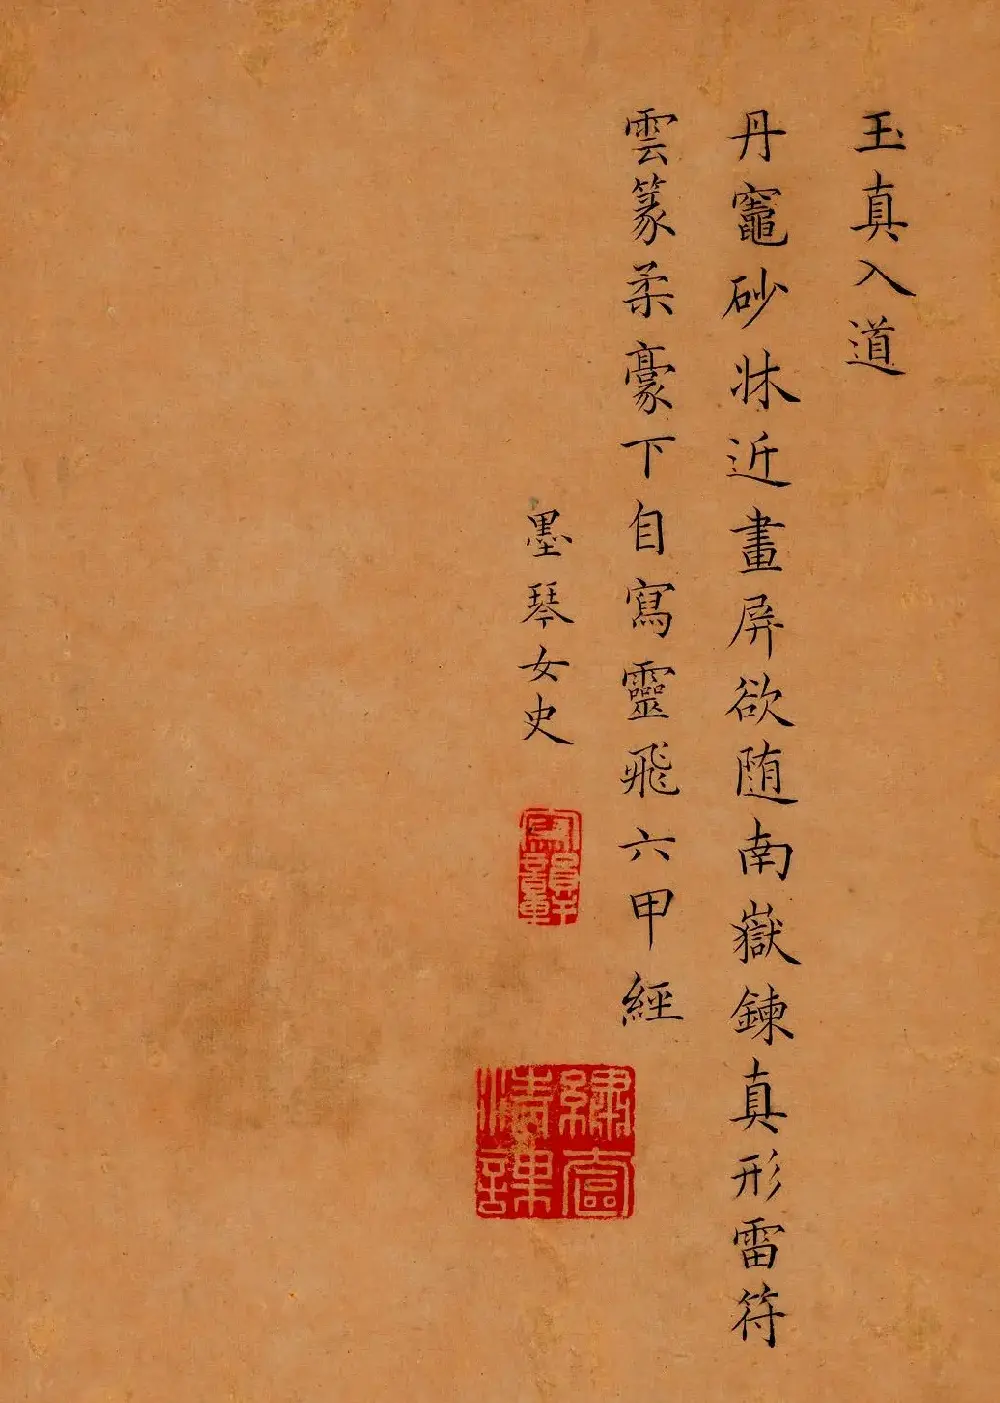 玉真入道
丹竈砂牀近畫屏欲随南嶽鍊真形雷符
雲篆柔豪下自寫靈飛六甲經
墨琴女史
寫韻軒
繡窗清課